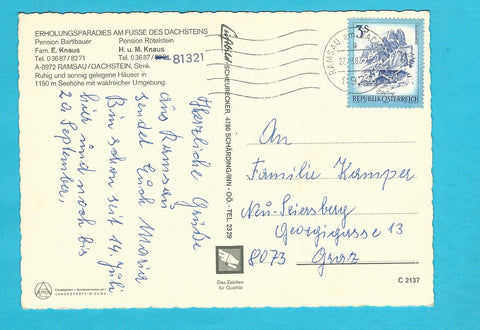 ERHOLUNGSPARADIES AM FUSSE DES DACHSTEINS
Pension Bartlbauer
Fam. E. Knaus
Tel. 03687/8271
Pension Rötelstein
H. u. M. Knaus
Tel. 03687/ 81321
A-8972 RAMSAU/DACHSTEIN, Stmk.
Ruhig und sonnig gelegene Häuser in
1150 m Seehöhe mit waldreicher Umgebung.
Herzliche Grüße
aus Ramsau
sendet Euch Maria
Bin schon seit 14. Juli
hier und noch bis
20 September.
SCHEURECKER, 4780 SCHÄRDING/INN - OÖ. - TEL. 2339
RAMSAU am DACH
3 S
REPUBLIK ÖSTERREICH
An
Familie Kamper
Neu-Seiersberg
Georgigasse 13
8073 Graz
Das Zeichen
für Qualität
C 2137